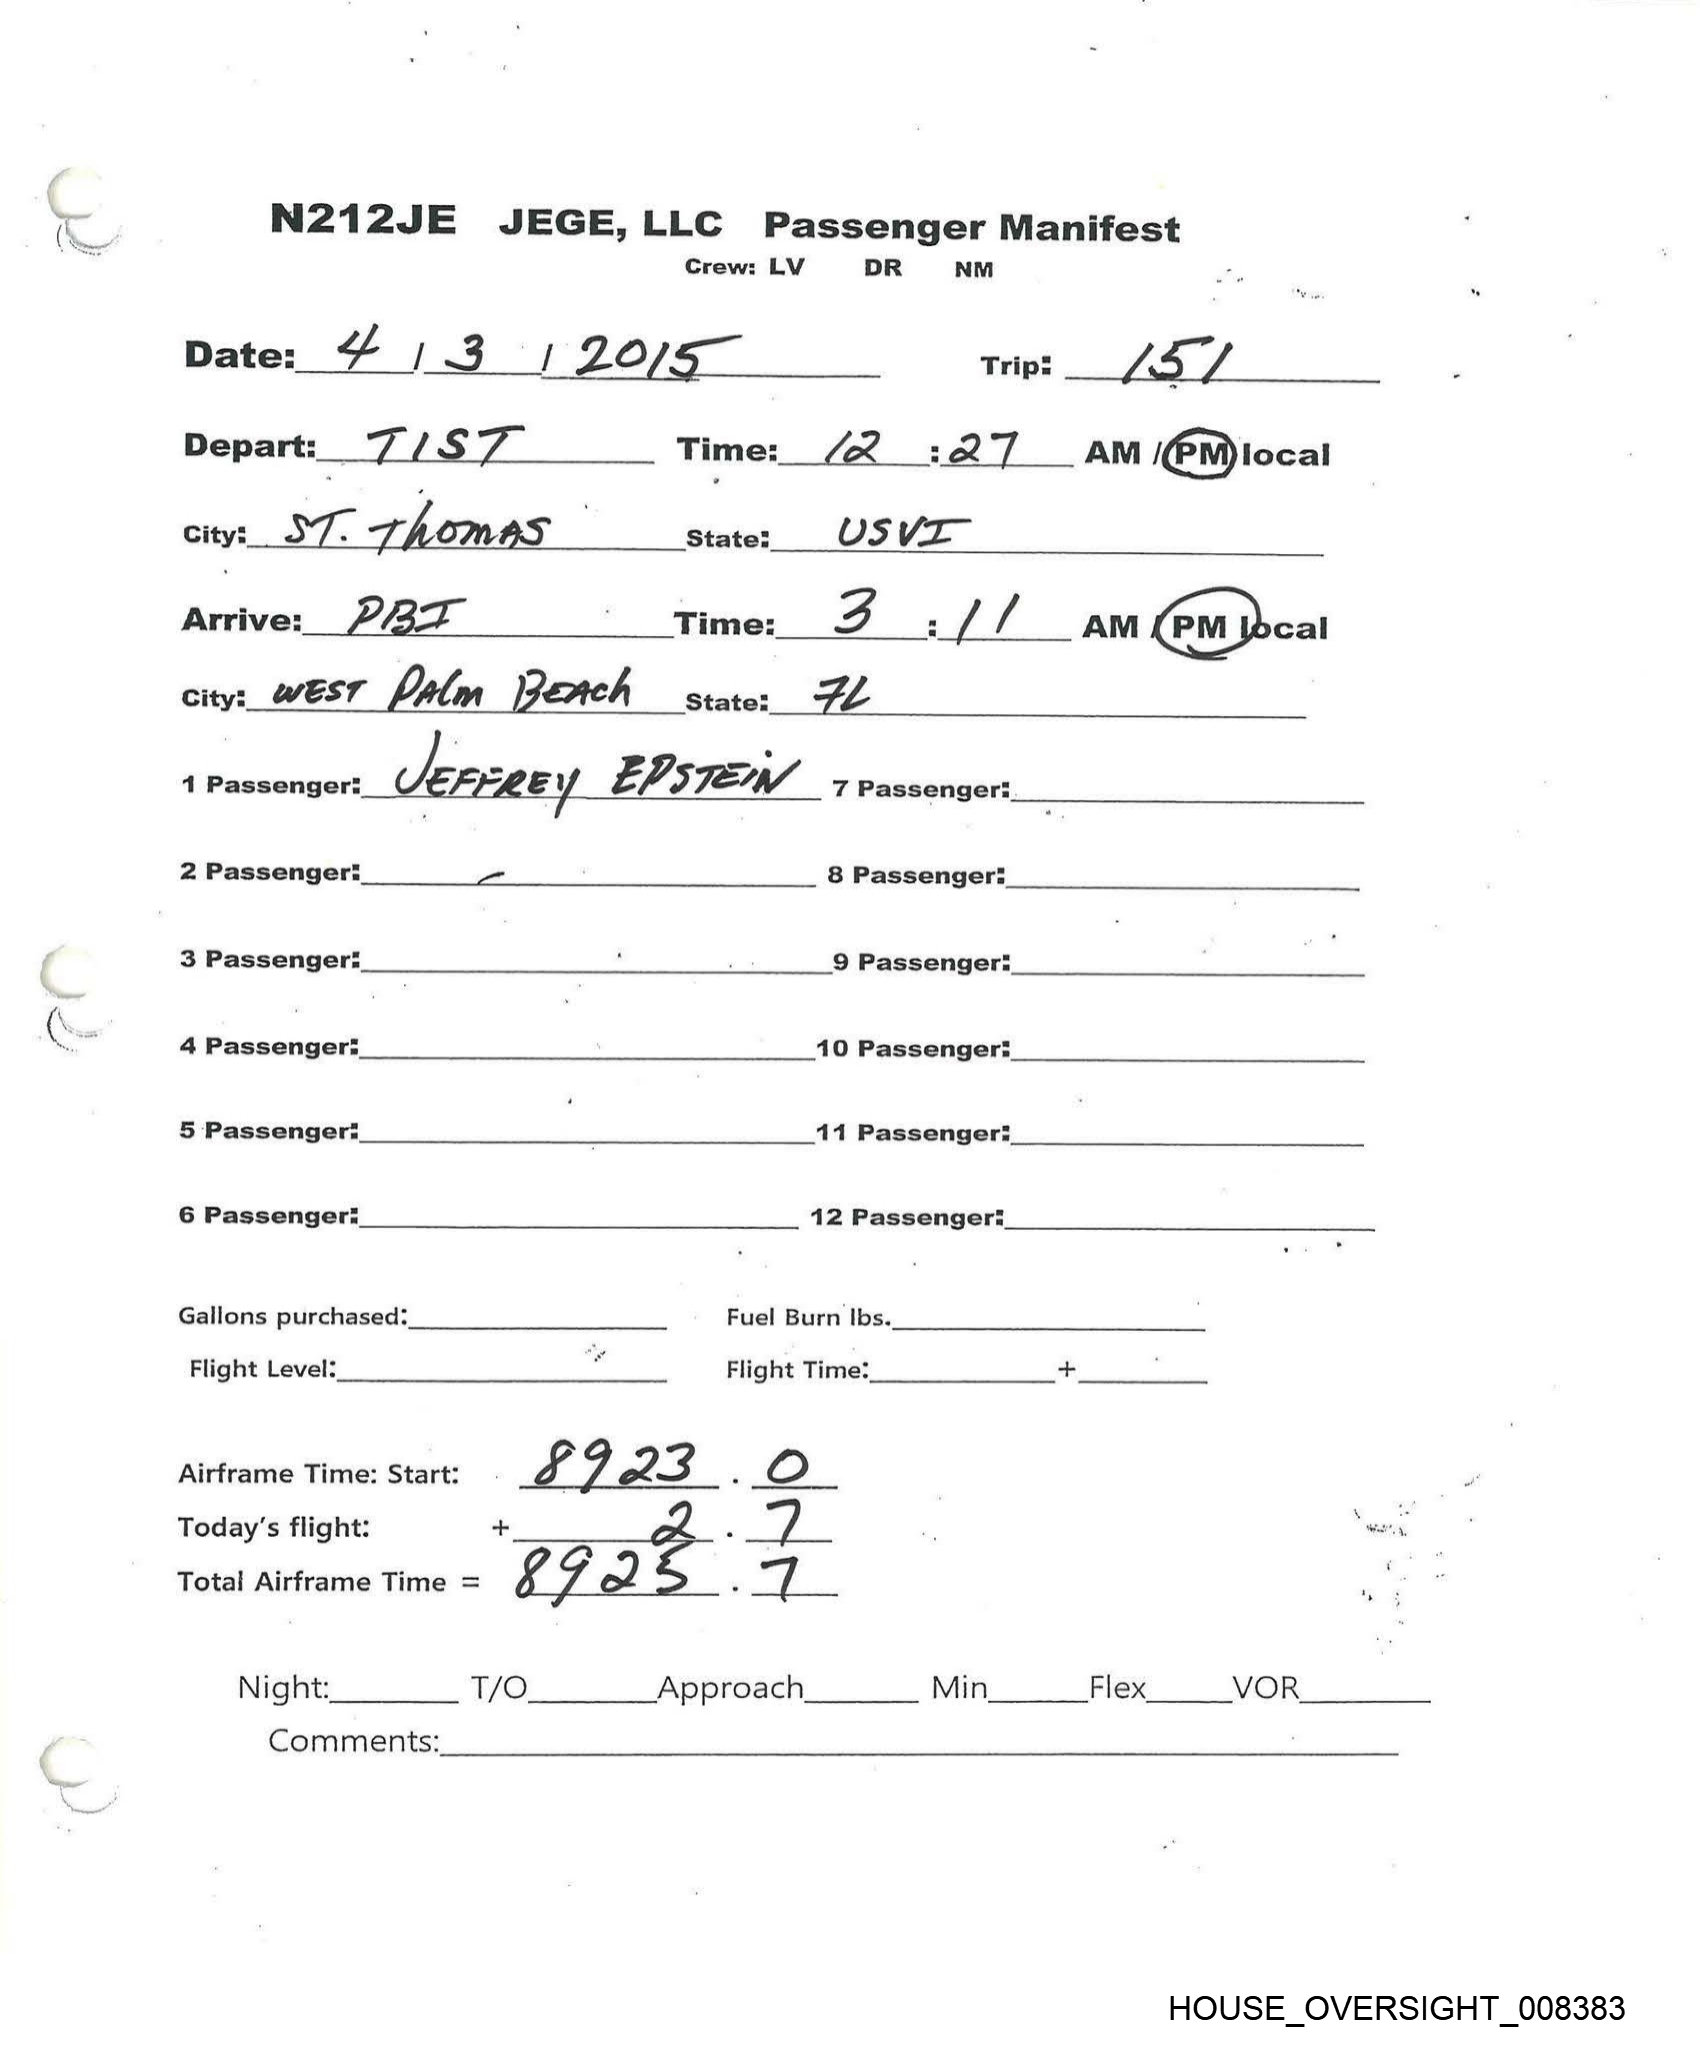 N212JE JEGE, LLC Passenger Manifest
Crew: LV DR NM
Date: 4 / 3 / 2015 Trip: 151
Depart: TIST Time: 12 : 27 AM / PM local
City: ST. Thomas State: USVI
Arrive: PBI Time: 3 : 11 AM / PM local
City: WEST PALM BEACH State: FL
1 Passenger: JEFFREY EPSTEIN 7 Passenger:
2 Passenger: 8 Passenger:
3 Passenger: 9 Passenger:
4 Passenger: 10 Passenger:
5 Passenger: 11 Passenger:
6 Passenger: 12 Passenger:
Gallons purchased: Fuel Burn lbs.
Flight Level: Flight Time: +
Airframe Time: Start: 8923 . 0
Today's flight: + 2 . 7
Total Airframe Time = 8925 . 7
Night: T/O Approach Min Flex VOR
Comments:
HOUSE_OVERSIGHT_008383